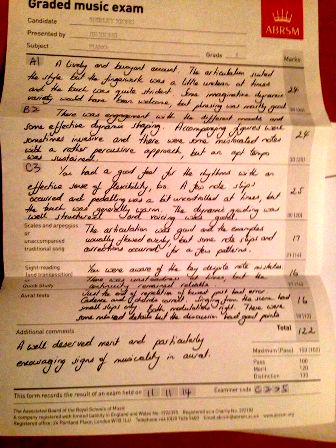 Graded music exam
Candidate
Presented by
Subject PIANO Grade
ABRSM
Marks
A1 A lively and buoyant account. The articulation suited
the style but the fingerwork was a little uneven at times
and the touch was quite strident. Some imaginative dynamic
variety would have been welcome, but phrasing was mostly good
24
B2 There was engagement with the different moods and
some effective dynamic shaping. Accompanying figures were
sometimes intrusive and there were some mistimed notes
with a rather percussive approach, but an apt tempo
was sustained.
24
C3 You had a good feel for the rhythms with an
effective sense of flexibility, too. A few note slips
occurred and pedalling was a bit uncontrolled at times, but
the touch was generally warm. The dynamic grading was
well structured and voicing was good.
25
Scales and arpeggios
or
unaccompanied
traditional song
The articulation was good and the examples
usually flowed evenly but some note slips and
corrections occurred for a few patterns.
17
Sight-reading
(and transposition)
You were aware of the key despite note mistakes
There was
continuity remained reliable
16
Quick study
Aural tests
Cadence and chords correct. Singing from the score had
small slips only, both modulations right. There were
some missed details but the discussion had good points
16
Additional comments
Total 122
A well deserved merit and particularly
encouraging signs of musicality in aural.
Maximum (Pass) 150 (100)
Pass 100
Merit 120
Distinction 130
This form records the result of an exam held on 11 11 14 Examiner code
The Associated Board of the Royal Schools of Music